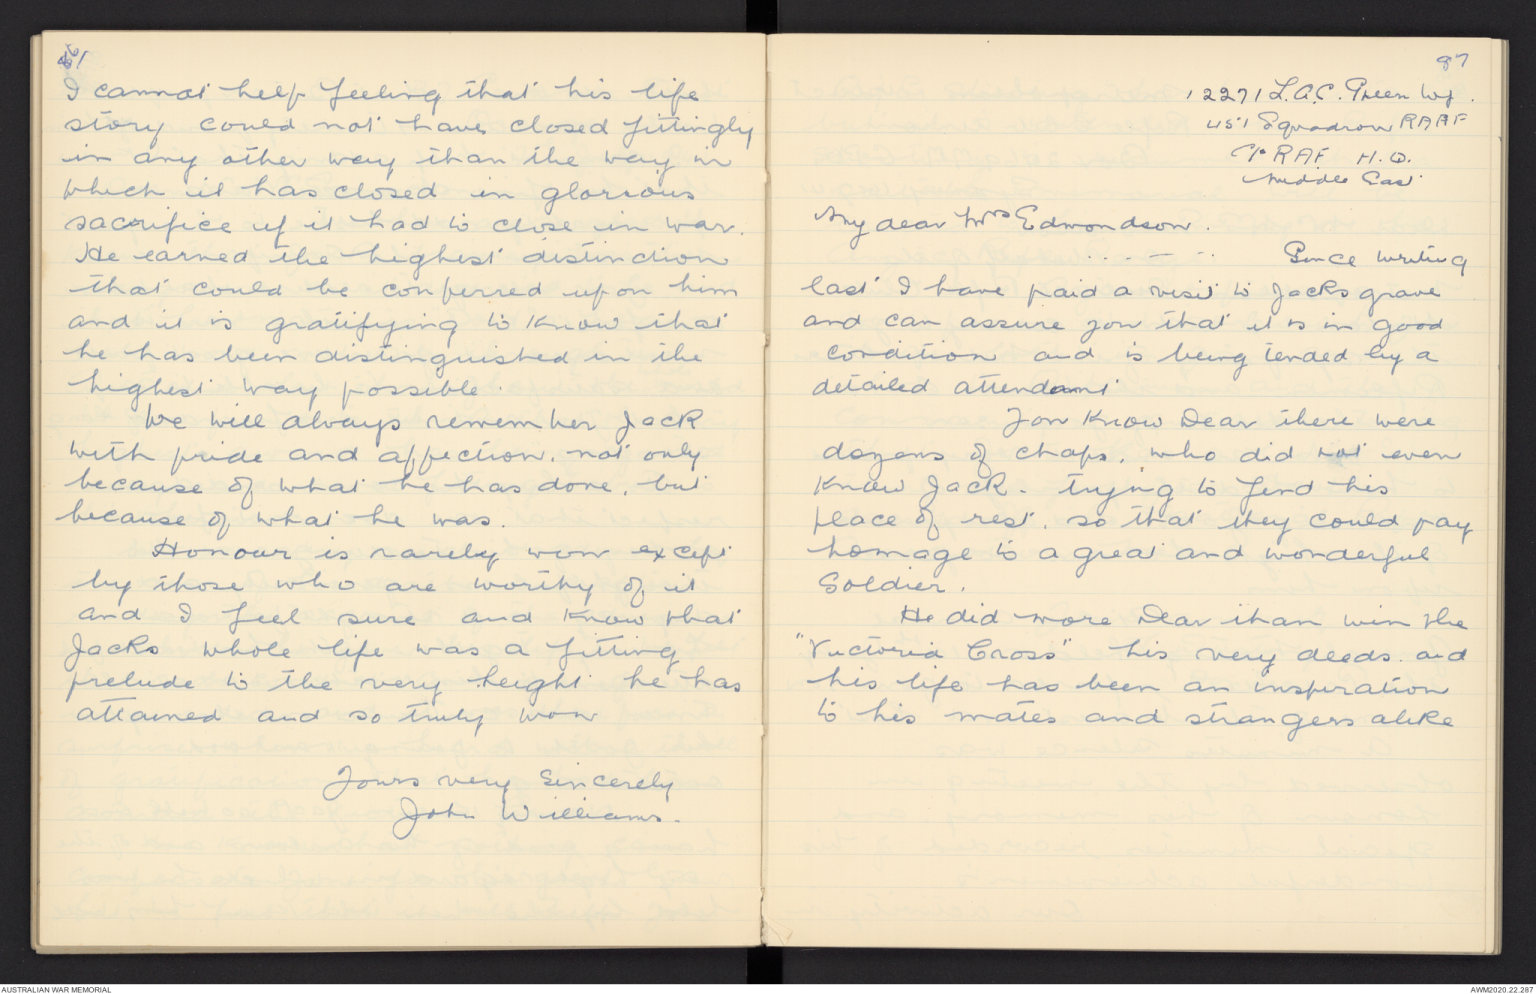 I cannot help feeling that his life
story could not have closed fittingly
in any other way than the way in
which it has closed in glorious
sacrifice if it had to close in war.
He earned the highest distinction
that could be conferred upon him
and it is gratifying to know that
he has been distinguished in the
highest way possible.
We will always remember Jack
with pride and affection. not only
because of what he has done, but
because of what he was.
Honour is rarely won except
by those who are worthy of it
and I feel sure and know that
Jacks whole life was a fitting
prelude to the very height he has
attained and so truly won
Yours very Sincerely
John Williams.
87
12271 L.A.C. Green WJ.
451 Squadron RAAF
C/o RAF H.Q.
Middle East
My dear Mrs Edmondson.
. . - - - . . Since writing
last I have paid a visit to Jacks grave
and can assure you that it is in good
condition and is being tended by a
detailed attendant
You Know Dear there were
dozens of chaps, who did not even
Know Jack. trying to find his
place of rest, so that they could pay
homage to a great and wonderful
Soldier.
He did more Dear than win the
"Victoria Cross" his very deeds. and
his life has been an inspiration
to his mates and strangers alike
AUSTRALIAN WAR MEMORIAL
AWM2020.22.287